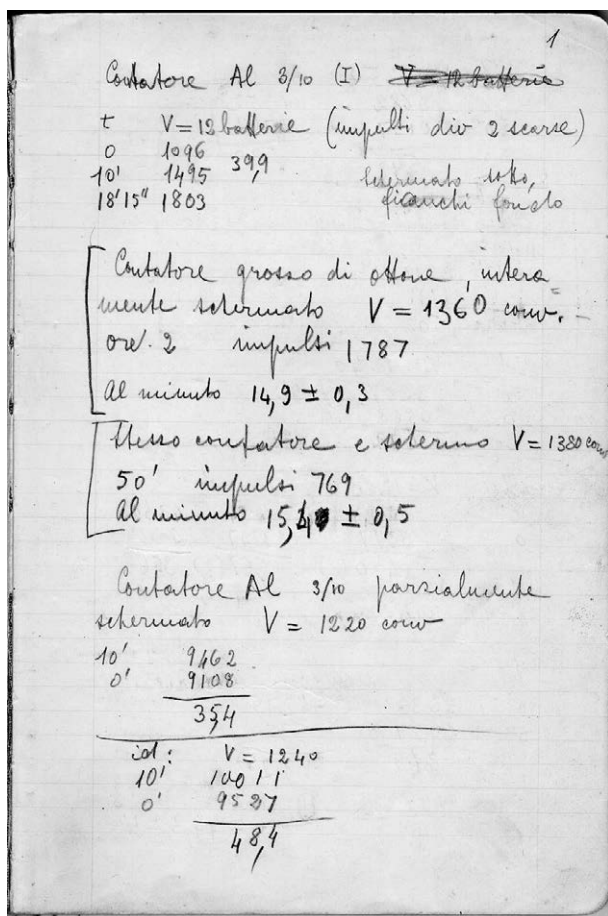 1
Contatore Al 3/10 (I) V=12 batterie
t V=12 batterie (impulsi div 2 scarse)
0 1096
10' 1495 39,9 schermato sotto,
18'15" 1803 fianchi fondo
Contatore grosso di ottone, intera=
mente schermato V = 1360 conv.
ore 2 impulsi 1787
Al minuto 14,9 ± 0,3
Stesso contatore e schermo V = 1380 conv
50' impulsi 769
Al minuto 15,4 ± 0,5
Contatore Al 3/10 parzialmente
schermato V = 1220 conv
10' 9462
0' 9108
35,4
id: V = 1240
10' 10011
0' 9527
48,4